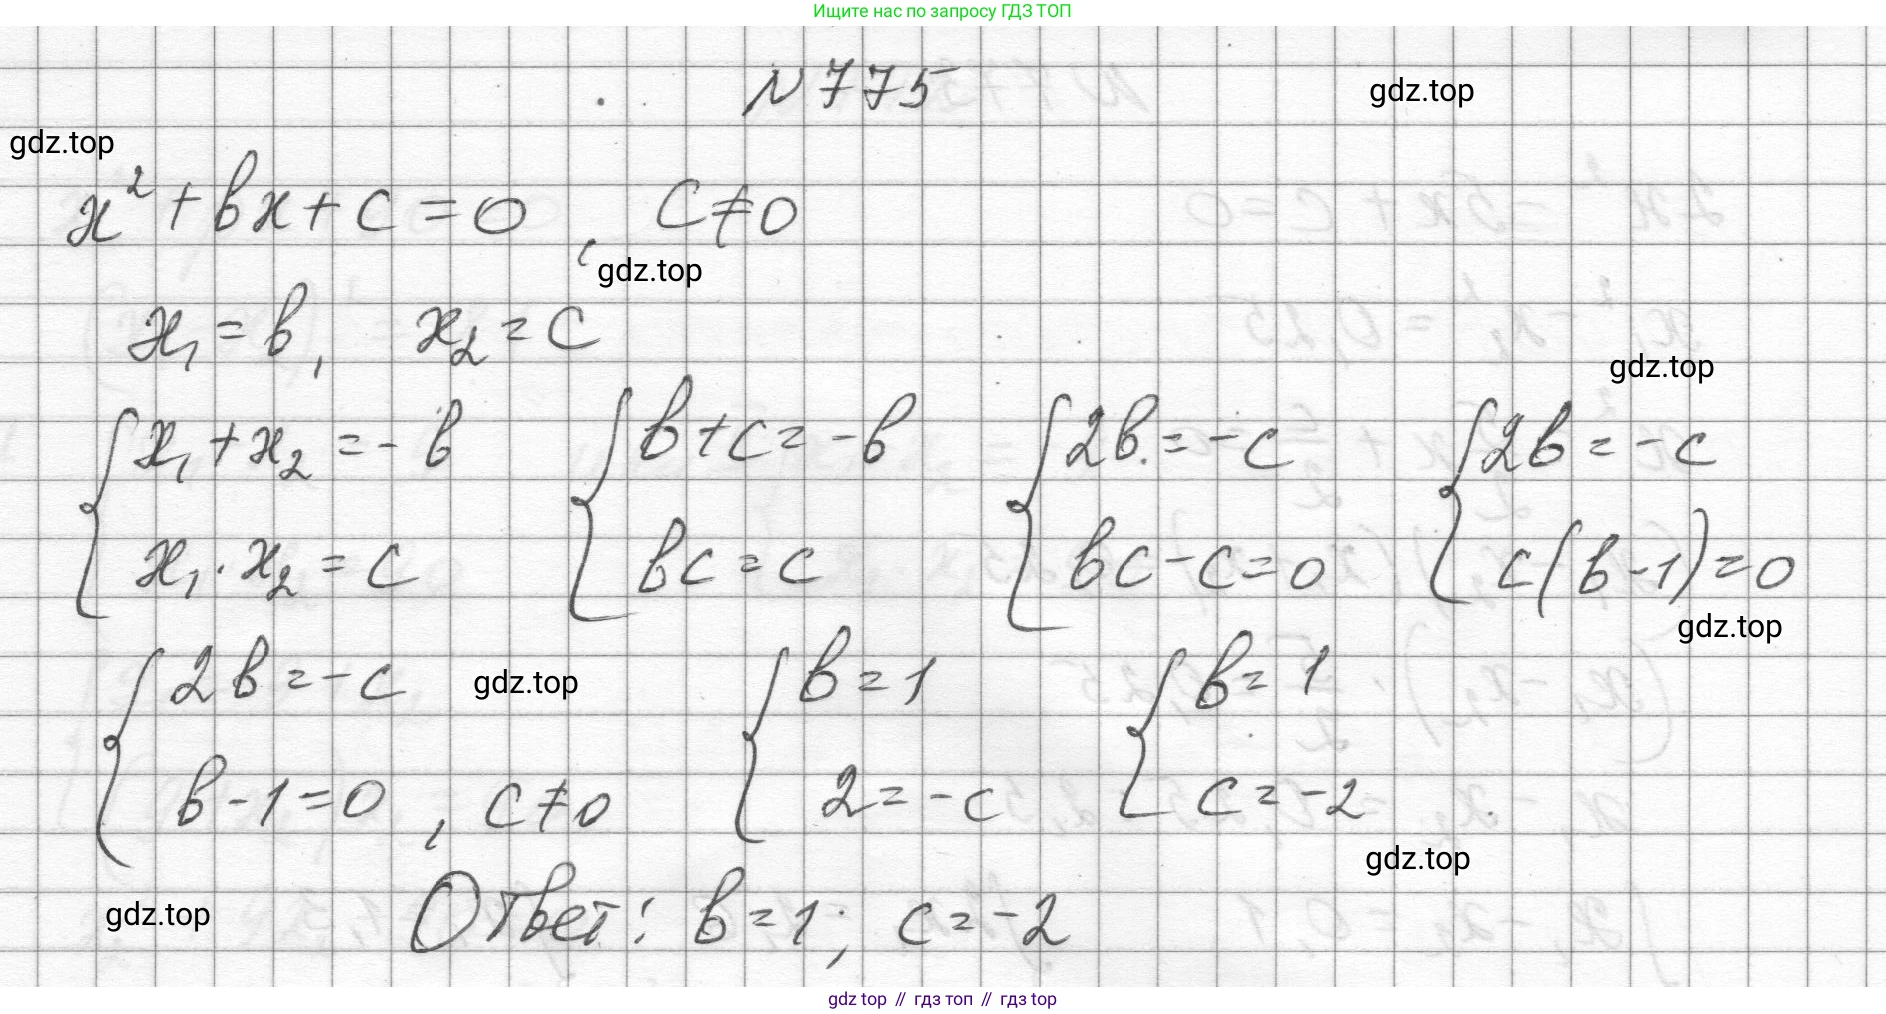 Ищите нас по запросу ГДЗ ТОП
N 775
gdz.top
gdz.top
x² + bx + c = 0, c ≠ 0
gdz.top
x₁ = b, x₂ = c
gdz.top
{ x₁ + x₂ = -b { b + c = -b { 2b = -c { 2b = -c
x₁ · x₂ = c bc = c bc - c = 0 c(b-1) = 0
gdz.top
{ 2b = -c gdz.top { b = 1 { b = 1
b - 1 = 0, c ≠ 0 2 = -c c = -2
gdz.top
gdz.top Ответ: b = 1; c = -2
gdz top // гдз топ // гдз top